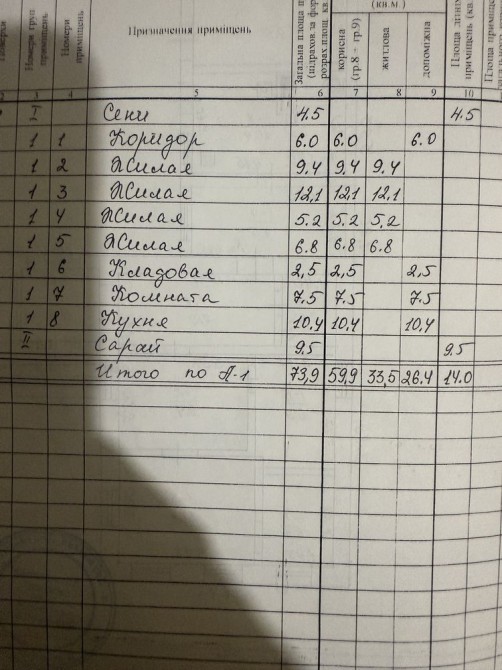 (кв.м.)
Поверхи
Номери груп приміщень
Номери приміщень
Призначення приміщень
Загальна площа
корисна (гр 8 - гр.9)
житлова
допоміжна
3 4 5 6 7 8 9 10
I Сени 4.5 4.5
1 1 Коридор 6.0 6.0 6.0
1 2 Жилая 9.4 9.4 9.4
1 3 Жилая 12,1 12,1 12,1
1 4 Жилая 5.2 5.2 5,2
1 5 Жилая 6.8 6.8 6.8
1 6 Кладовая 2,5 2,5 2,5
1 7 Комната 7.5 7.5 7.5
1 8 Кухня 10.4 10.4 10.4
II Сарай 9.5 9.5
Итого по А-1 73,9 59,9 33,5 26.4 14.0